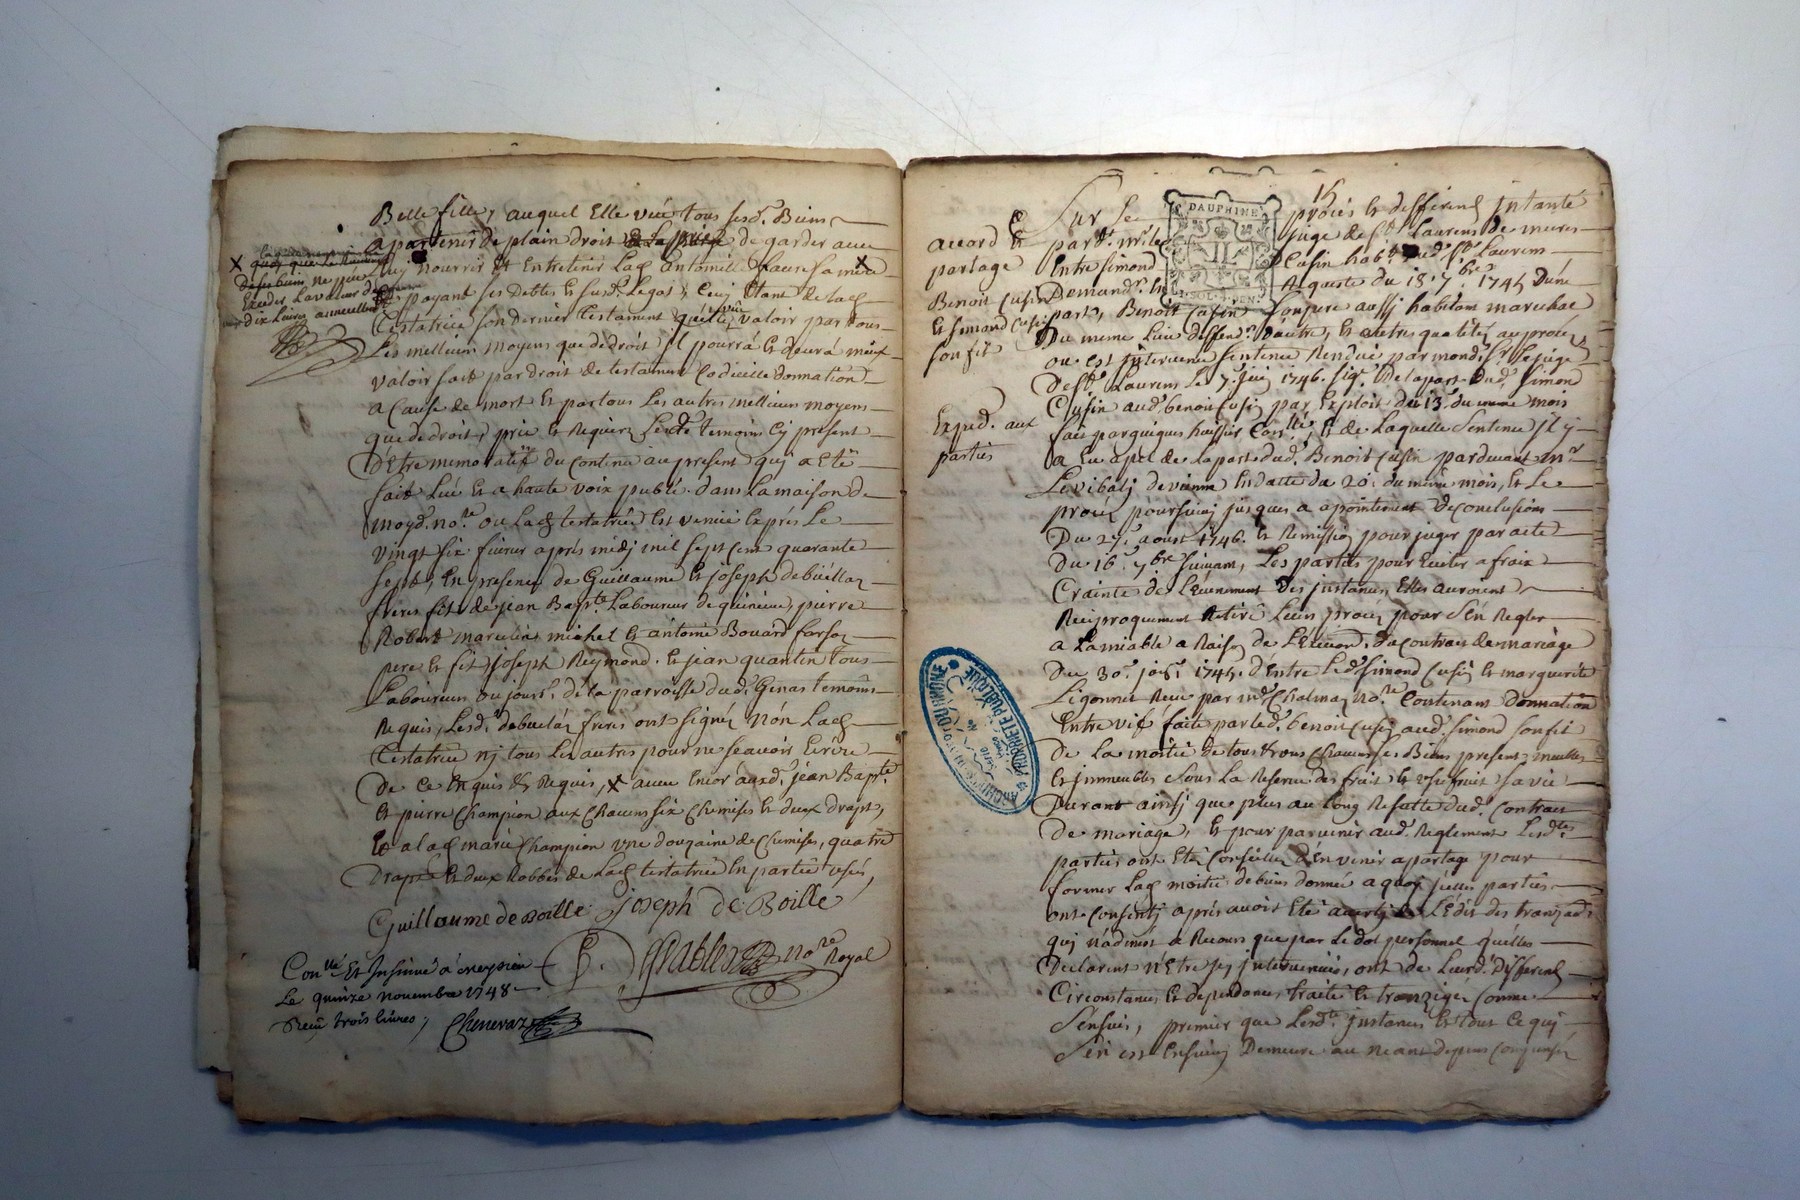 Belle fille, auquel Elle veut tous sesd. Biens
apartenir de plain droit de garder avec
luy nourrir et Entretenir Lad. antoinette faure sa mère
payant ses Dettes et susd. Legas, Cecy Etant de lad.
testatrice son dernier testament qu'elle veut valoir par tous
Les meilleurs moyens que de droit il pourrà et devrà mieux
valoir soit par droit de testament Codicille donnation
a Cause de mort et par tous Les autres meilleurs moyens
que de droit, prie et Requiert temoins Cy present
D'Etre memoratif du Contenu au present qui a Eté
fait Leu et a haute voix publié dans La maison de
moyd. no.re ou Lad. testatrice Est venüe Exprés Le
vingt six fevrier aprés midy mil sept Cent quarante
sept, En presence de Guillaume et joseph
freres fils de jean Bap.te Laboureur de pierre
Robert michel et antoine Bouard
pere et fils joseph Reymond et jean quantin tous
Laboureurs ou journ. de la parroisse dud. Genas temoins
Requis, Lesd. freres ont signé non Lad.
testatrice ny tous Les autres pour ne sçavoir Ecrire
De ce Enquis et Requis, x avec Encor auxd. jean Bap.te
et pierre Champion aux Chacuns six Chemises et deux draps,
et a lad. marie Champion une douzaine de Chemises, quatre
Draps et deux Robbes de Lad. testatrice En partie usés,
Guillaume de Boille joseph de Boille
no.re Royal
x
des. biens ne peut
Exceder La valeur de
dix Livres annuellem.
Con.llé Et Insinué à meyzieu
Le quinze novembre 1748
Reçu trois livres,
15
DAUPHINE
accord et
partage
Benoit Cusin
et simond Cusin
son fils
Exped. aux
parties
Sur Le procés et differend intanté
pard. m.r le juge de S.t Laurens de mures
Entre simond Cusin hab.t aud. S.t Laurens
Demand.r En Requeste du 18. 7.bre 1745 d'une
part, Benoit Cusin son pere aussy habitant marechal
Du meme Lieu deffend.r d'autre, et autres qualités au procés
ou est Intervenüe sentence Rendüe par mond. S.r Le juge
de S.t Laurens Le 7. juin 1746. sig. De la part dud. simond
Cusin aud. benoit Cusin par Exploit du 13. du meme mois
fait par huissier Con.llé, et de Laquelle sentence il y
a Eu apel de la part dud. Benoit Cusin pardevant m.r
Levibally de vienne En datte du 20. du même mois, et Le
procés poursuivy jusques a apointement de Conclusions
Du 27. aoust 1746. et Remission pour juger par acte
du 16. 7.bre suivant, Les parties pour Eviter a fraix
Crainte de L'evenement Des instances Elles auroient
Reciproquement Retiré Leurs procés pour s'En Regler
a L'amiable a Raison de du Contrat de mariage
Du 30. 1745. d'Entre Led. simond Cusin et marguerite
Ligonnet Reçu par m.e Chalmas no.re Contenant Donnation
Entre vifs faite par led. benoit Cusin aud. simond son fils
De La moitié de tous et uns Chacuns ses Biens presents meubles
et immeubles sous La Reserve des fruits et usufruit sa vie
Durant ainsy que plus au long Resulte dud. Contrat
De mariage, et pour parvenir aud. Reglement Lesd.tes
parties ont Eté Conseillées d'en venir a partage pour
former Lad. moitié de biens donnée a quoy icelles parties
ont Consenty aprés avoir Eté averty L'edit des tranzact.
qui n'admet de Recours que par Le dol personnel qu'elles
Declarent n'Etre icy intervenües, ont de Leurd. different
Circonstances et dependances traité et tranzigé Comme
s'ensuit, premier que Lesd.tes instances et tout Ce qui
s'en est Ensuivy Demeure au neant depens Compensés
PROPRIÉTÉ PUBLIQUE